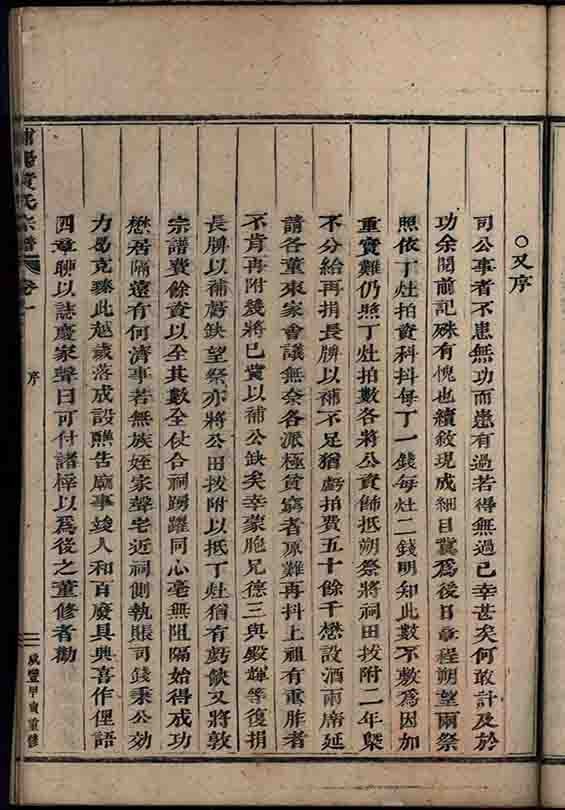 又序
司公事者不患無功而患有過若得無過已幸甚矣何敢計及於
功余閱前記殊有愧也續敘現成細目冀為後日章程朔望兩祭
照依丁灶拍資科抖每丁一錢每灶二錢明知此數不敷為因加
重實難仍照丁灶拍數各將公資餙抵朔祭將祠田拨附二年槩
不分給再捐長牌以補不足猶虧拍費五十餘千懋設酒兩席延
請各董來家會議無奈各派極貧窮者原難再抖上祖有重胙者
不肯再附幾將已賞以補公缺矣幸蒙胞兄德三與殿輝等復捐
長牌以補虧缺望祭亦將公田拨附以抵丁灶猶有虧缺又將敦
宗譜費餘資以全其數全仗合祠踴躍同心毫無阻隔始得成功
懋居隔遠有何濟事若無族姪家聲宅近祠側執賬司錢秉公効
力曷克臻此越歲落成設醮告廟事竣人和百廢具興喜作俚語
四章聊以誌慶家聲曰可付諸梓以為後之董修者勸
黃氏宗譜 卷一 序
咸豐甲寅重修